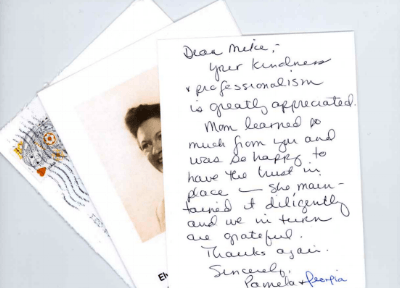 Dear Mike,-
Your kindness
& professionalism
is greatly appreciated.
Mom learned so
much from you and
was so happy to
have the trust in
place — she main-
tained it diligently
and we in turn
are grateful.
Thanks again.
Sincerely,
Pamela & Georgia